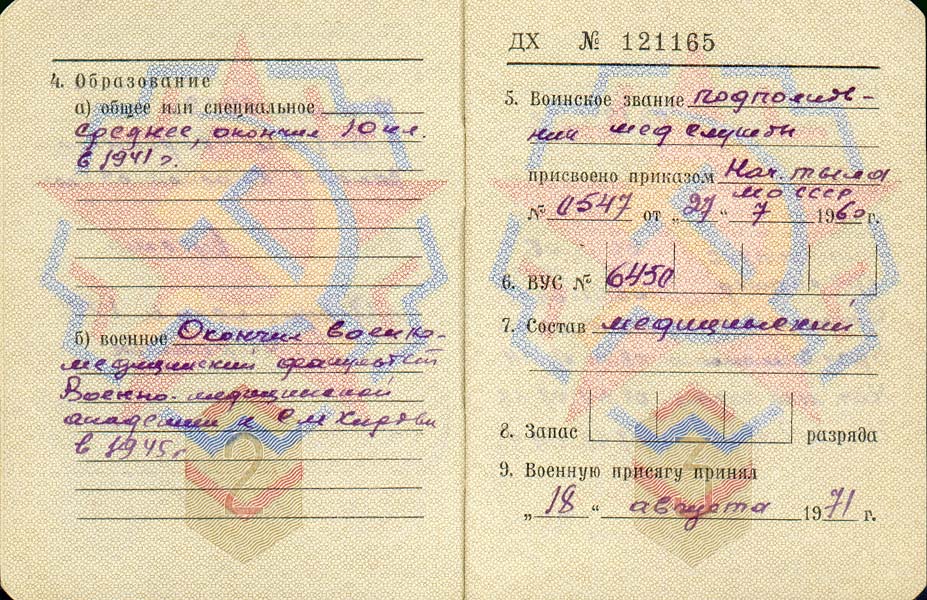 4. Образование
а) общее или специальное
среднее, окончил 10 кл.
в 1941 г.
б) военное Окончил военно-
медицинский факультет
Военно-медицинской
академии им Кирова
в 1945 г
2
ДХ № 121165
5. Воинское звание подполков-
ник мед службы
присвоено приказом Нач. тыла
МО СССР
№ 0547 от „27“ 7 1960 г.
6. ВУС № 6450
7. Состав медицинский
8. Запас разряда
9. Военную присягу принял
„18“ августа 1971 г.
3